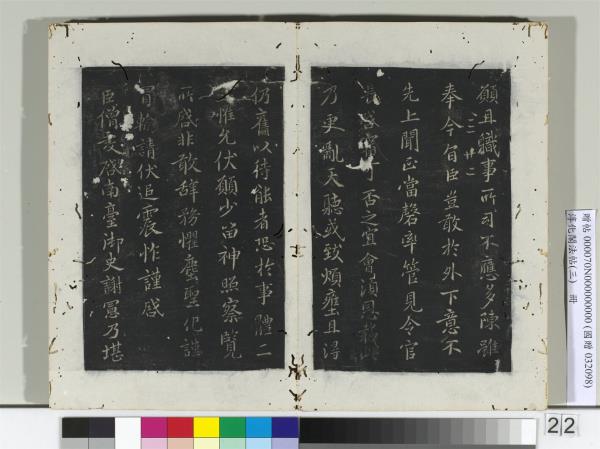 顧且職事所司不應多陳雖
奉今旨臣豈敢於外下意不
三 廿二
先上聞正當罄率管見今官
可否之宜會須恩裁
乃更亂天聽或致煩壅且淂
仍舊以待能者恐於事體二
惟允伏願少留神照察覽
所啓非敢辞務懼塵聖化謹
冒輸請伏追震怍謹啓
臣僧虔啓南臺御史謝憲乃堪
贈帖 000070N000000000 (國贈 032098)
淳化閣法帖(三) 冊
22